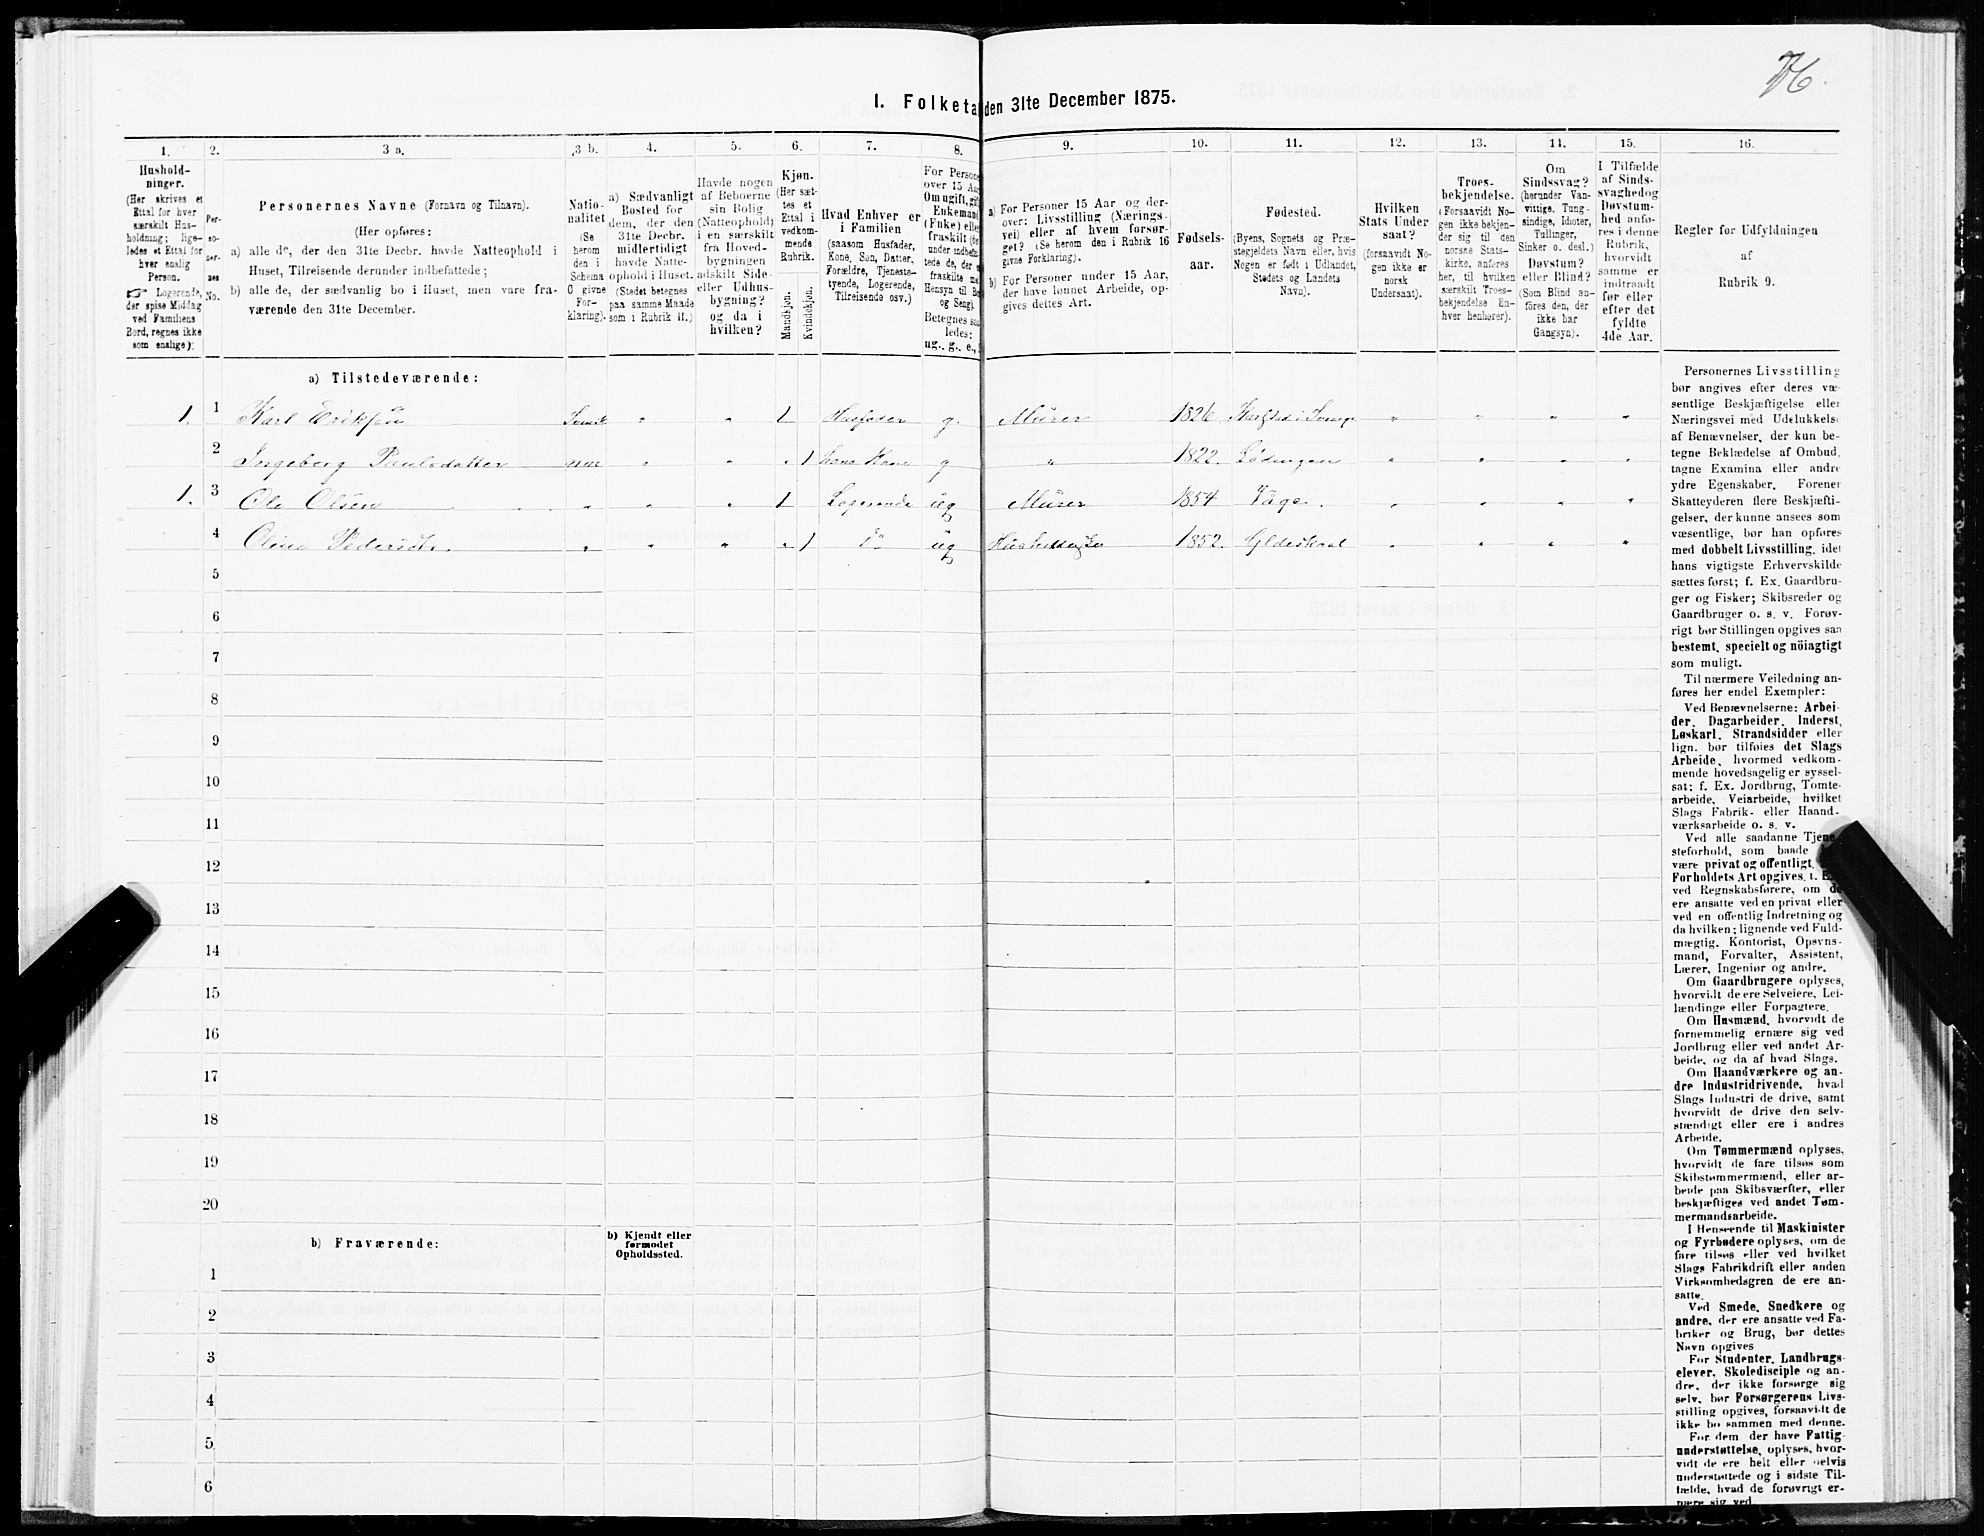 I. Folketa den 31te December 1875.
1.
Hushold-
ninger.
(Her skrives et
Ettal for hver
særskilt Hus-
holdning; lige-
ledes et Ettal for
hver enslig
Person.
☞ Logerende,
der spise Middag
ved Familiens
Bord, regnes ikke
som enslige);
2.
Per-
so-
ner-
nes
No.
3 a.
Personernes Navne (Fornavn og Tilnavn).
(Her opføres:
a) alle de, der den 31te Decbr. havde Natteophold i
Huset, Tilreisende derunder indbefattede;
b) alle de, der sædvanlig bo i Huset, men vare fra-
værende den 31te December.
3 b.
Natio-
nalitet
(Se
herom
den i
Schema
O givne
For-
klaring).
4.
a) Sædvanligt
Bosted for
dem, der den
31te Decbr.
midlertidigt
havde Natte-
ophold i Huset.
(Stedet betegnes
paa samme Maade
som i Rubrik 11.)
5.
Havde nogen
af Beboerne
sin Bolig
(Natteophold)
i en særskilt
fra Hoved-
bygningen
adskilt Side-
eller Udhus-
bygning?
og da i
hvilken?
6.
Kjøn.
(Her sæt-
tes et
Ettal i
vedkom-
mende
Rubrik.
Mandkjøn.
Kvindekjøn.
7.
Hvad Enhver er
i Familien
(saasom Husfader,
Kone, Søn, Datter,
Forældre, Tjeneste-
tyende, Logerende,
Tilreisende osv.)
8.
For Persone
over 15 Aa
Om ugift, gif
Enkemand
(Enke) elle
fraskilt
9.
a) For Personer 15 Aar og der-
over: Livsstilling (Nærings-
vei) eller af hvem forsør-
get? (Se herom den i Rubrik 16
givne Forklaring).
b) For Personer under 15 Aar,
der have lønnet Arbeide, op-
gives dettes Art.
10.
Fødsels-
aar.
11.
Fødested.
(Byens, Sognets og Præ-
stegjeldets Navn eller, hvis
Nogen er født i Udlandet,
Stedets og Landets
Navn).
12.
Hvilken
Stats Under
saat?
(forsaavidt No-
gen ikke er
norsk
Undersaat).
13.
Troes-
bekjendelse.
(Forsaavidt No-
gen ikke bekjen-
der sig til den
norske Stats-
kirke, anføres
her, til hvilken
særskilt Troes-
bekjendelse En-
hver henhører).
14.
Om
Sindssvag?
(herunder Van-
vittige, Tung-
sindige, Idioter,
Tullinger,
Sinker o. desl.)
Døvstum?
eller Blind?
(Som Blind an-
føres den, der
ikke har
Gangsyn).
15.
I Tilfælde
af Sinds-
svaghed og
Døvstum-
hed anfø-
res i denne
Rubrik,
hvorvidt
samme er
indtraadt
før eller
efter det
fyldte
4de Aar.
16.
Regler for Udfyldningen
af
Rubrik 9.
a) Tilstedeværende:
1. 1 Karl Eriksen Svensk " " 1 Husfader g. Murer 1826 Karlstad i Sverige " " " "
2 Ingeberg Paulsdatter " " " 1 hans Kone g " 1822. Lødingen " " " "
1. 3 Ole Olsen " " " 1 Logerende ug Murer 1854 Vage. " " " "
4 Oline Pedersdtr. " " " " 1 Do ug 1852. Gildeskaal " " " "
5
6
7
8
9
10
11
12
13
14
15
16
17
18
19
20
b) Fraværende:
b) Kjendt eller
formodet
Opholdssted.
1
2
3
4
5
6
Personernes Livsstilling
bør angives efter deres væ-
sentlige Beskjæftigelse eller
Næringsvei med Udelukkelse
af Benævnelser, der kun be-
tegne Beklædelse af Ombud,
tagne Examina eller andre
ydre Egenskaber. Forener
Skatteyderen flere Beskjæfti-
gelser, der kunne ansees som
væsentlige, bør han opføres
med dobbelt Livsstilling, idet
hans vigtigste Erhvervskilde
sættes først; f. Ex. Gaardbru-
ger og Fisker; Skibsreder og
Gaardbruger o. s. v. Forøv-
rigt bør Stillingen opgives saa
bestemt, specielt og nöiagtigt
som muligt.
Til nærmere Veiledning an-
føres her endel Exempler:
Ved Benævnelserne: Arbei-
der, Dagarbeider, Inderst,
Løskarl, Strandsidder eller
lign. bør tilføies det Slags
Arbeide, hvormed vedkom-
mende hovedsagelig er syssel-
sat; f. Ex. Jordbrug, Tomte-
arbeide, Veiarbeide, hvilket
Slags Fabrik- eller Haand-
værksarbeide o. s. v.
Ved alle saadanne Tjene-
steforhold, som baade
være privat og offentligt,
Forholdets Art opgives, f. E
ved Regnskabsførere, om de
ere ansatte ved en privat eller
ved en offentlig Indretning og
da hvilken; lignende ved Fuld-
mægtig, Kontorist, Opsyns-
mand, Forvalter, Assistent,
Lærer, Ingeniør og andre.
Om Gaardbrugere oplyses,
hvorvidt de ere Selveiere, Lei-
lændinge eller Forpagtere.
Om Husmænd, hvorvidt de
fornemmelig ernære sig ved
Jordbrug eller ved andet Ar-
beide, og da af hvad Slags.
Om Haandværkere og an-
dre Industridrivende, hvad
Slags Industri de drive, samt
hvorvidt de drive den selv-
stændigt eller ere i andres
Arbeide.
Om Tømmermænd oplyses,
hvorvidt de fare tilsøs som
Skibstømmermænd, eller ar-
beide paa Skibsværfter, eller
beskjæftiges ved andet Tøm-
mermandsarbeide.
I Henseende til Maskinister
og Fyrbødere oplyses, om de
fare tilsøs eller ved hvilket
Slags Fabrikdrift eller anden
Virksomhedsgren de ere an-
satte.
Ved Smede, Snedkere og
andre, der ere ansatte ved Fa-
briker og Brug, bør dettes
Navn opgives
For Studenter, Landbrugs-
elever, Skoledisciple og an-
dre, der ikke forsørge sig
selv, bør Forsørgerens Livs-
stilling opgives, forsaavidt de
ikke bo sammen med denne.
For dem, der have Fattig-
understøttelse, oplyses, hvor-
vidt de ere helt eller delvis
understøttede og i sidste Til-
fælde, hvad de forøvrigt er-
nære sig ved